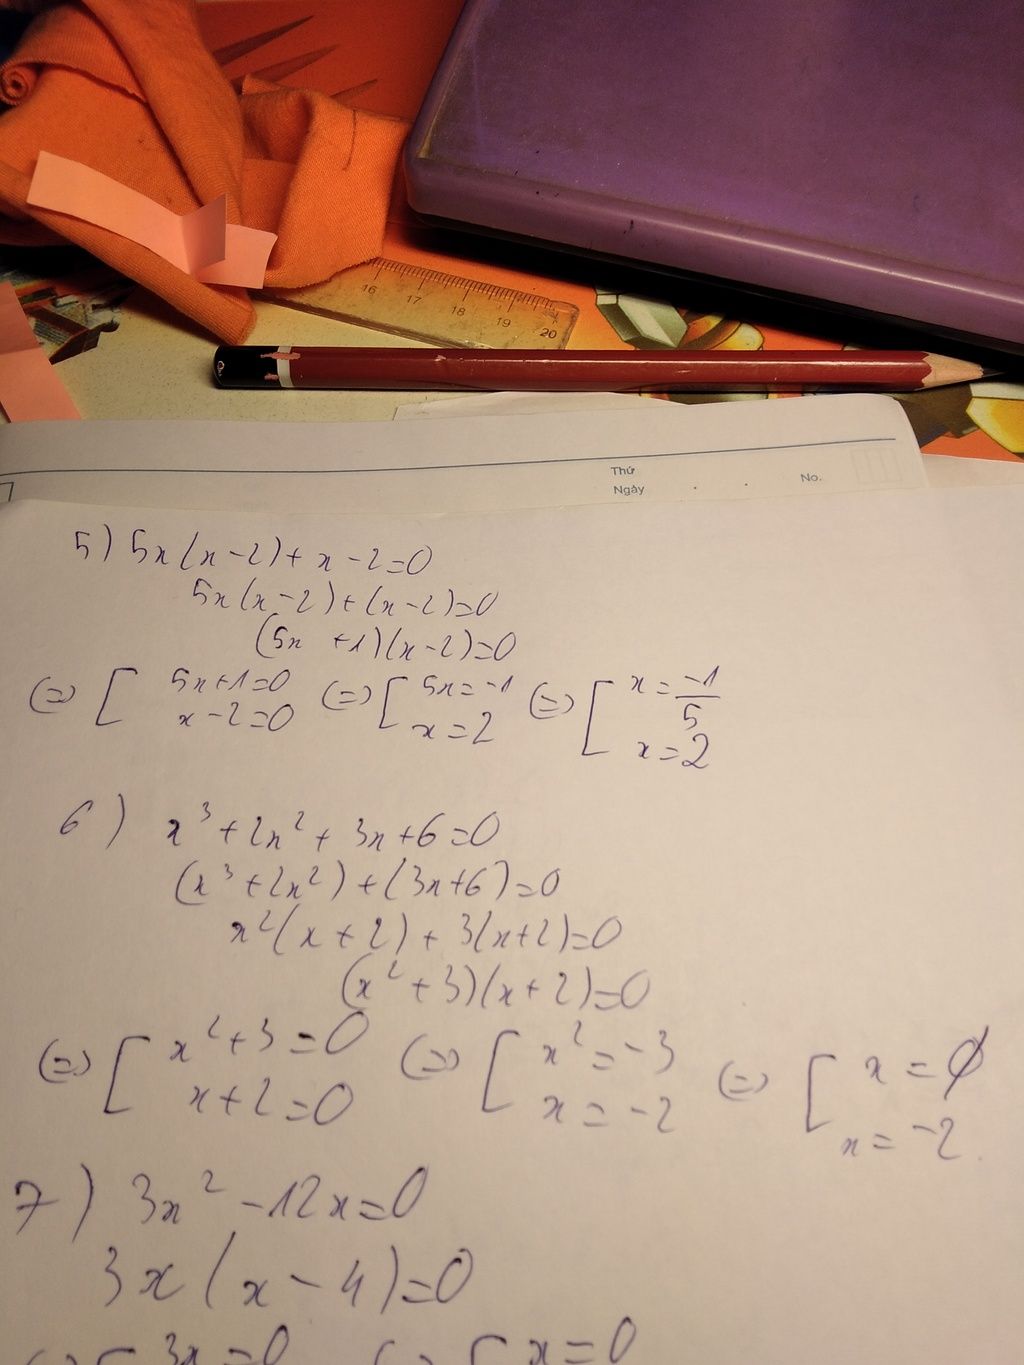 16 17 18 19 20
Thứ
Ngày . . No.
5) 5x(x-2)+x-2=0
5x(x-2)+(x-2)=0
(5x +1)(x-2)=0
(=) [ 5x+1=0 (=) [ 5x=-1 (=) [ x=-1/5
x-2=0 x=2 x=2
6) x³+2x²+3x+6=0
(x³+2x²)+(3x+6)=0
x²(x+2)+3(x+2)=0
(x²+3)(x+2)=0
(=) [ x²+3=0 (=) [ x²=-3 (=) [ x=∅
x+2=0 x=-2 x=-2
7) 3x²-12x=0
3x(x-4)=0
(=) [ 3x=0 (=) [ x=0